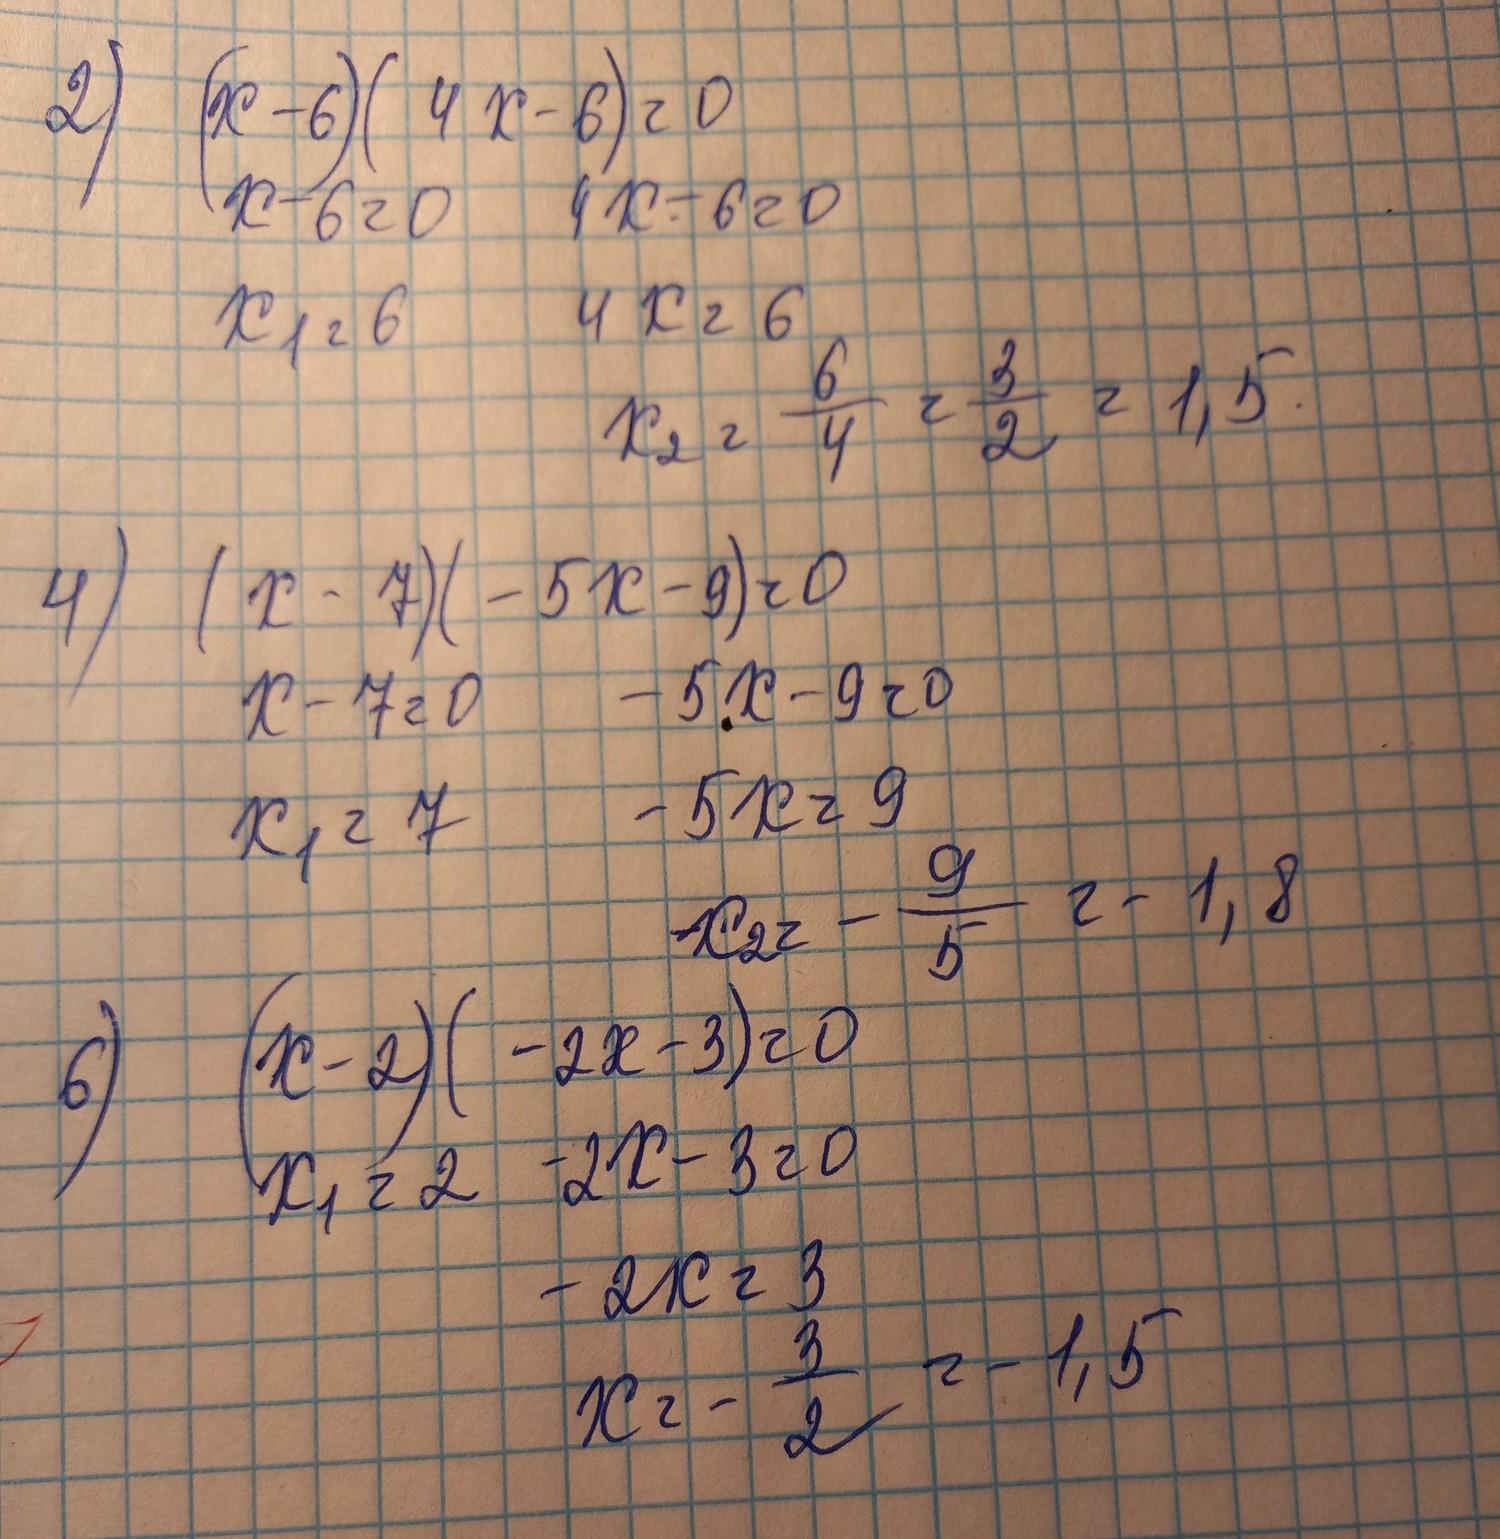 2) (x-6)(4x-6)=0
x-6=0 4x-6=0
x₁=6 4x=6
x₂=6/4=3/2=1,5.
4) (x-7)(-5x-9)=0
x-7=0 -5x-9=0
x₁=7 -5x=9
x₂=-9/5=-1,8
6) (x-2)(-2x-3)=0
x₁=2 -2x-3=0
-2x=3
x=-3/2=-1,5